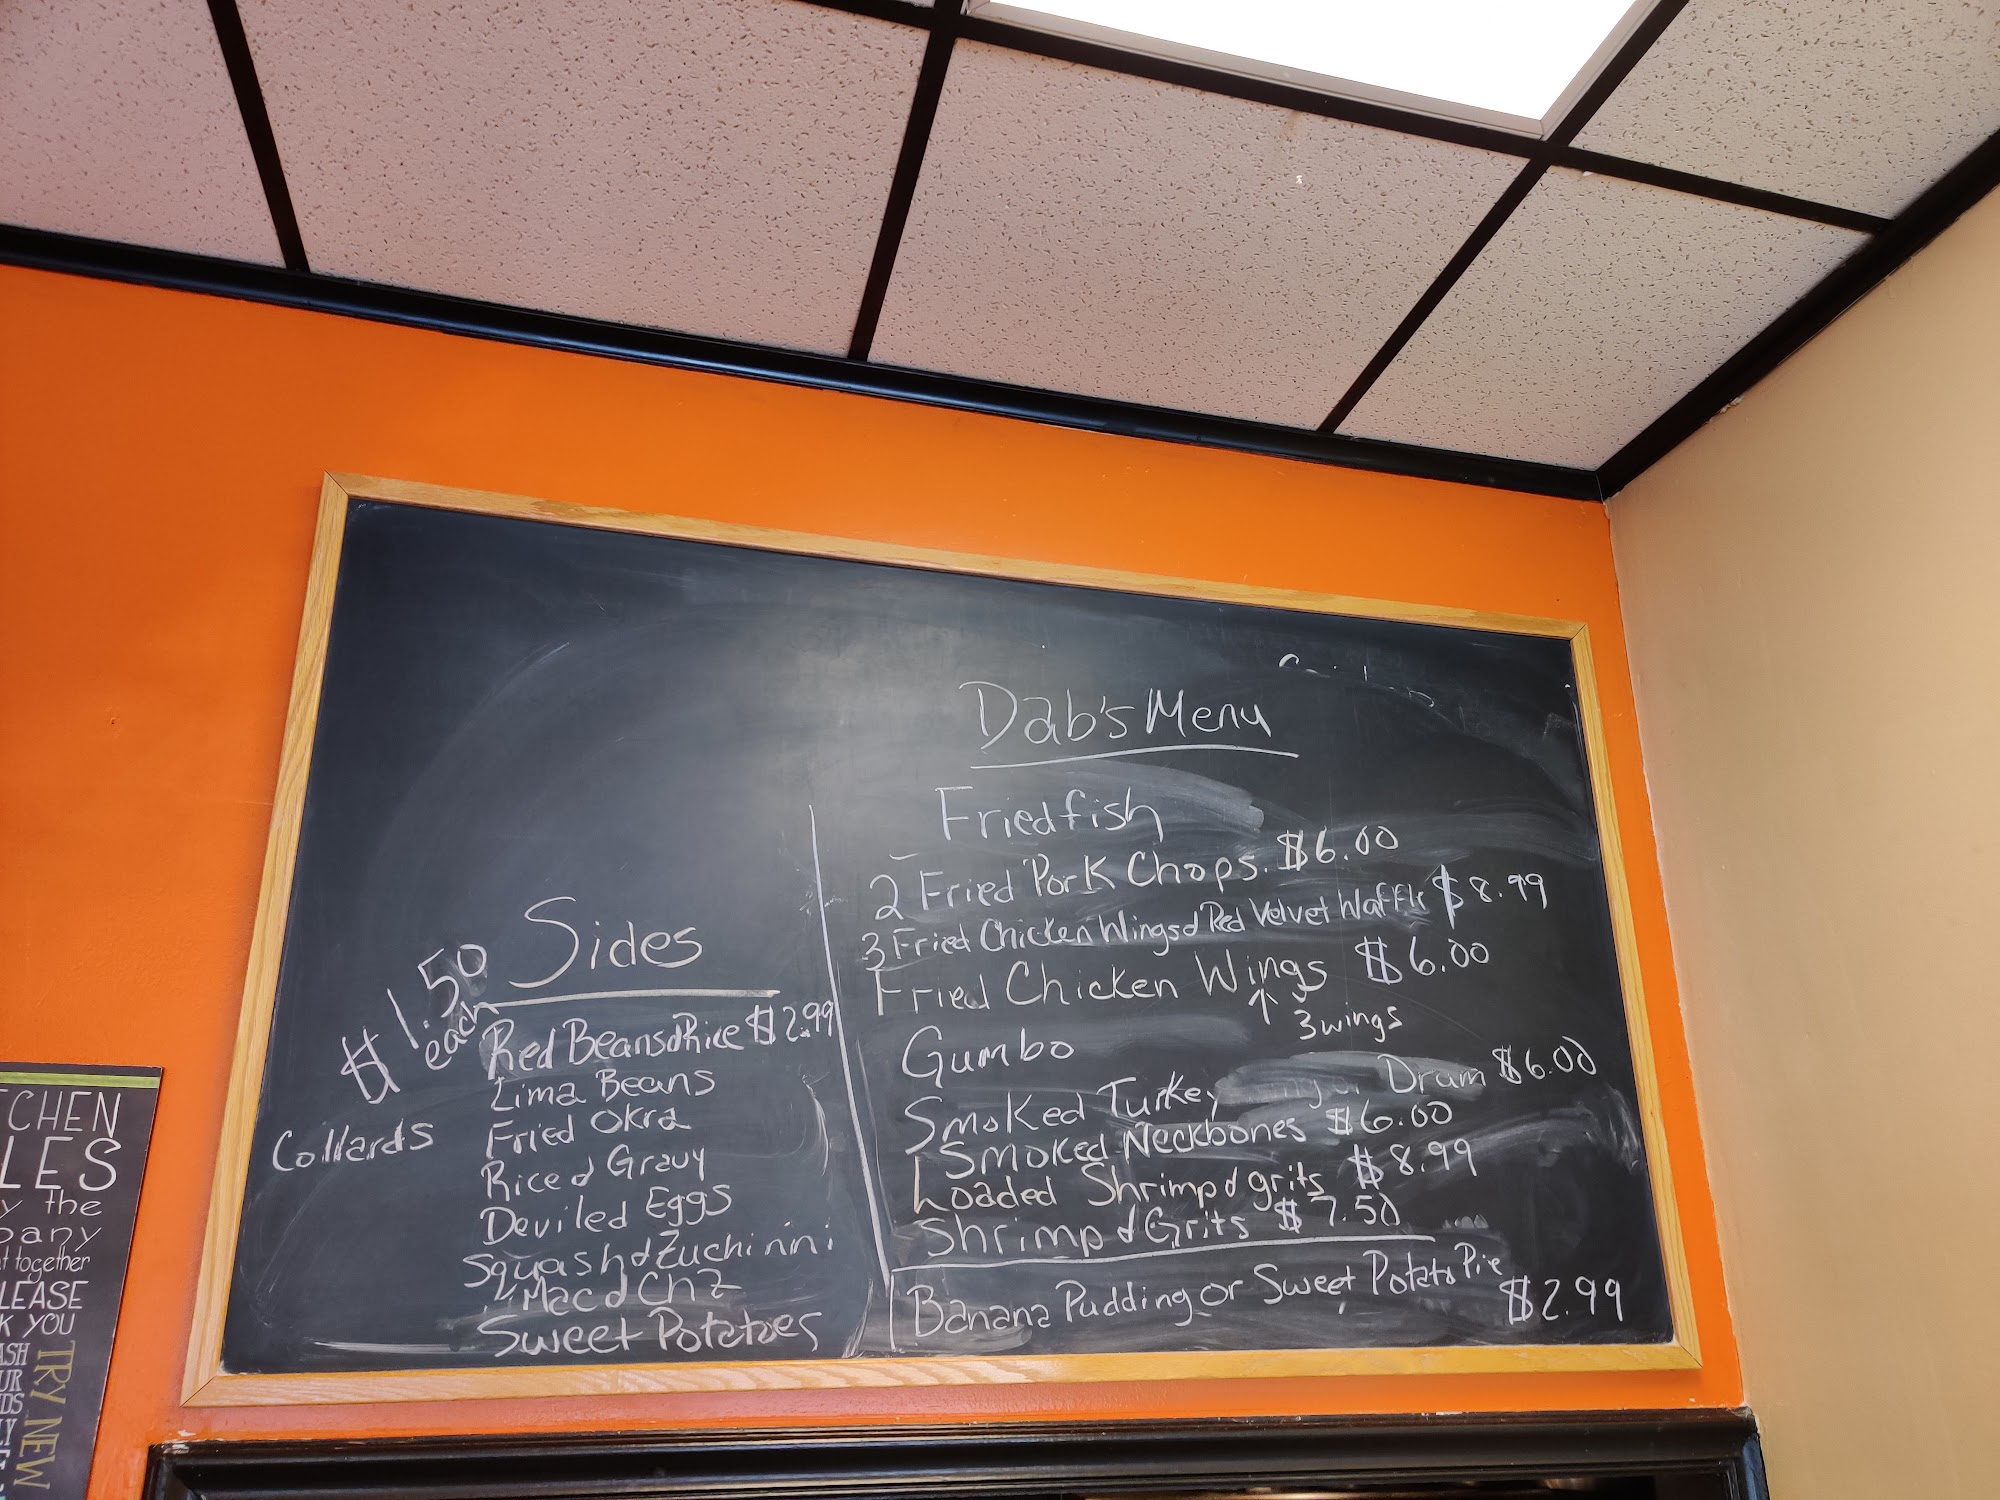 Dab's Menu
Fried fish
2 Fried Pork Chops. $6.00
3 Fried Chicken Wings & Red Velvet Waffle $8.99
Fried Chicken Wings $6.00
↑ 3 wings
Gumbo
Smoked Turkey Drum $6.00
Smoked Neckbones $6.00
Loaded Shrimp & grits $8.99
Shrimp & Grits $7.50
Banana Pudding or Sweet Potato Pie
$2.99
Sides
$1.50
each
Red Beans & Rice $2.99
Lima Beans
Collards
Fried Okra
Rice & Gravy
Deviled Eggs
Squash & Zuchinini
Mac d Chz
Sweet Potatoes
TCHEN
LES
the
together
LEASE
K YOU
TRY NEW